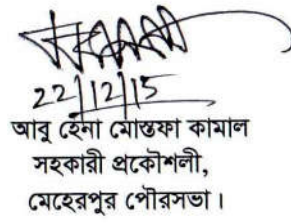 22/12/15
আবু হেনা মোস্তফা কামাল
সহকারী প্রকৌশলী,
মেহেরপুর পৌরসভা।